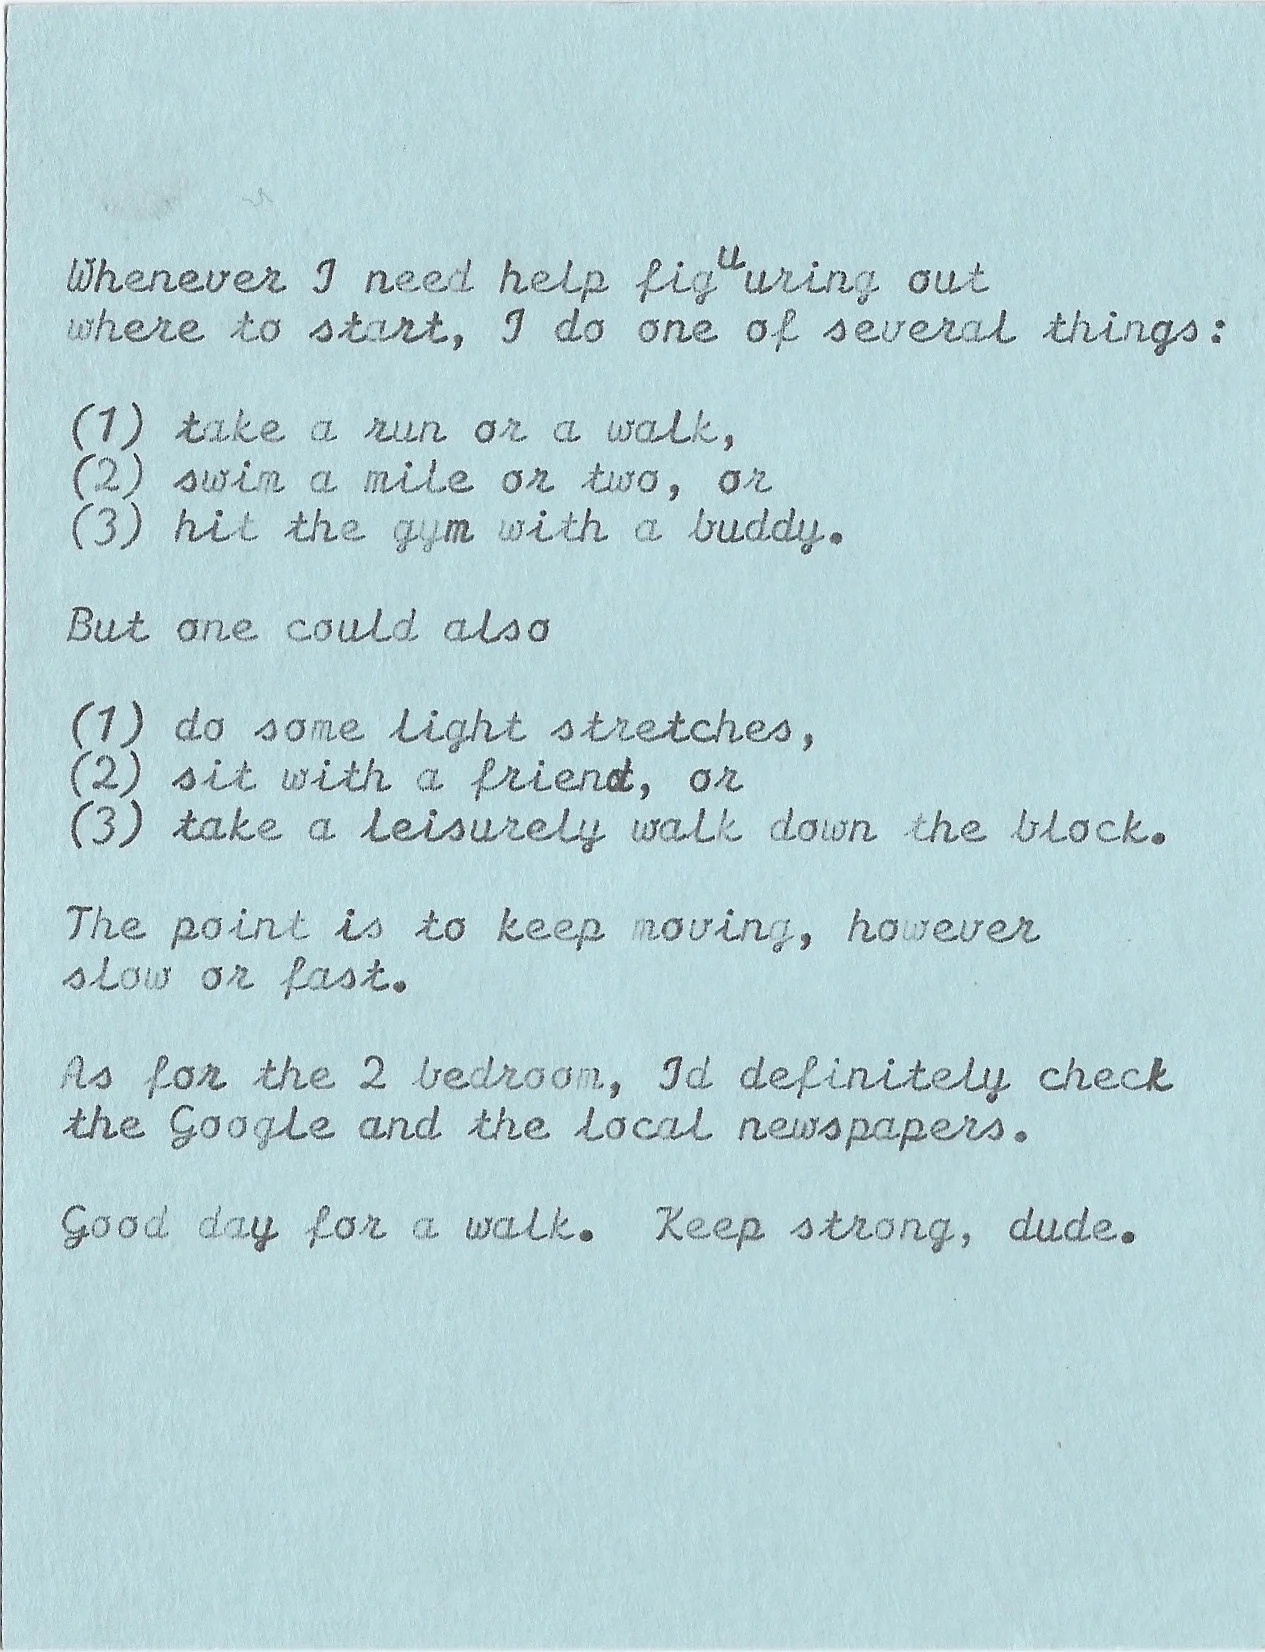 Whenever I need help figuuring out
where to start, I do one of several things:
(1) take a run or a walk,
(2) swim a mile or two, or
(3) hit the gym with a buddy.
But one could also
(1) do some light stretches,
(2) sit with a friend, or
(3) take a leisurely walk down the block.
The point is to keep moving, however
slow or fast.
As for the 2 bedroom, Id definitely check
the Google and the local newspapers.
Good day for a walk.  Keep strong, dude.